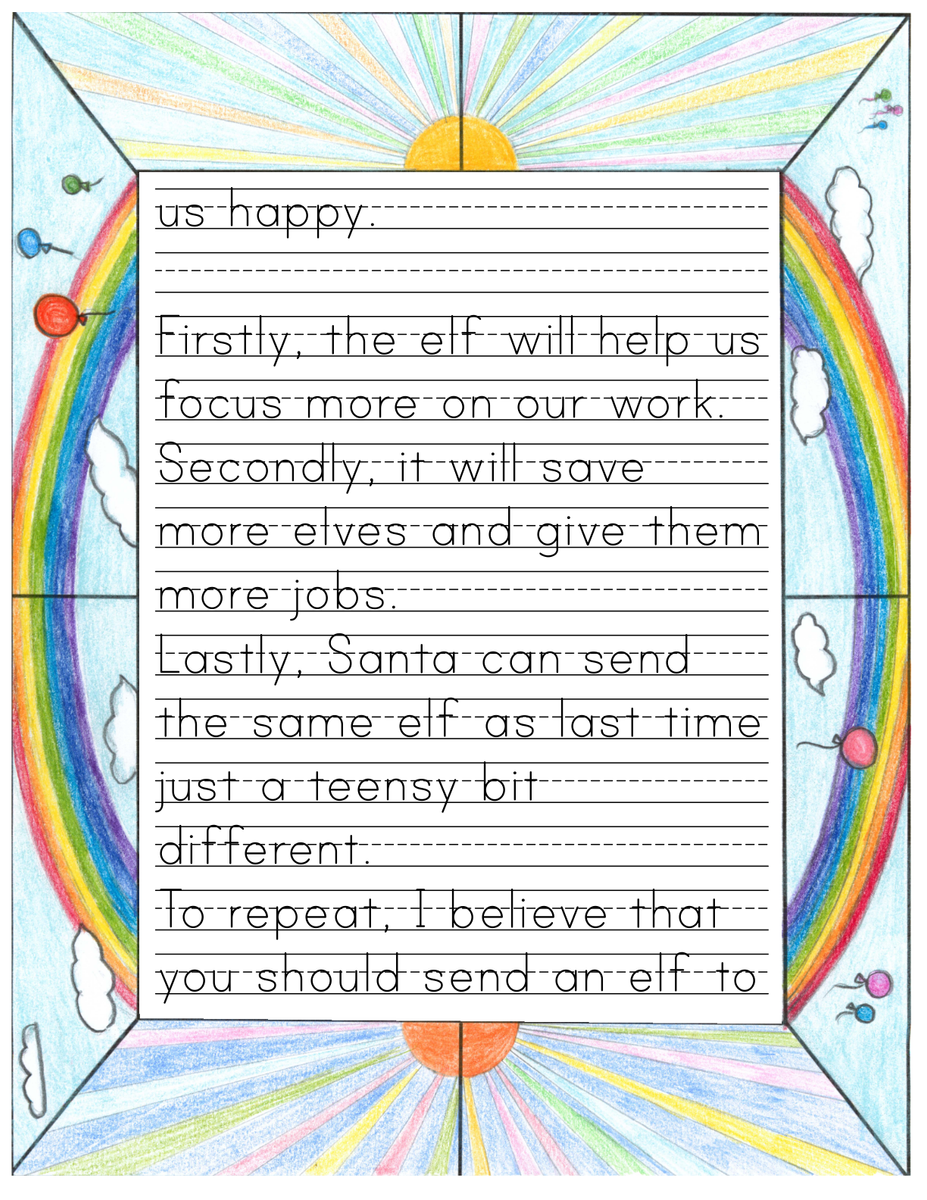 us happy.
Firstly, the elf will help us
focus more on our work.
Secondly, it will save
more elves and give them
more jobs.
Lastly, Santa can send
the same elf as last time
just a teensy bit
different.
To repeat, I believe that
you should send an elf to